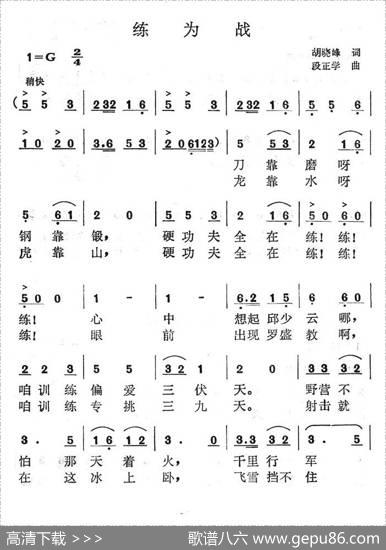 练为战
1=G 2/4
胡晓峰 词
段正学 曲
稍快
(5 5 3 | 232 1 6 | 5 5 3 | 232 1 6 |
1 0 2 0 | 3·6 5 3 | 2 0 6123) | 5 5 | 2 1 6 |
刀靠磨呀
龙靠水呀
5 6 1 | 2 0 | 5 5 3 | 2 1 6 | 5 0 6 0 |
钢靠锻，硬功夫全在练！练！
虎靠山，硬功夫全在练！练！
5 0 0 | 1 - | 1 - | 6·2 1 5 | 6 6 0 |
练！心中想起邱少云哪，
练！眼前出现罗盛教啊，
2 2 3 | 5 5 | 3 3 2 | 1 2 | 2 0 | 3·3 3 3 2 |
咱训练偏爱三伏天。野营不
咱训练专挑三九天。射击就
3· 5 | 1 6 1 2 | 3 3 2 | 1 2 3 2 | 3· 5 |
怕那天着火，千里行军
在这冰上卧，飞雪挡不住
高清下载 >> 歌谱八六 www.gepu86.com